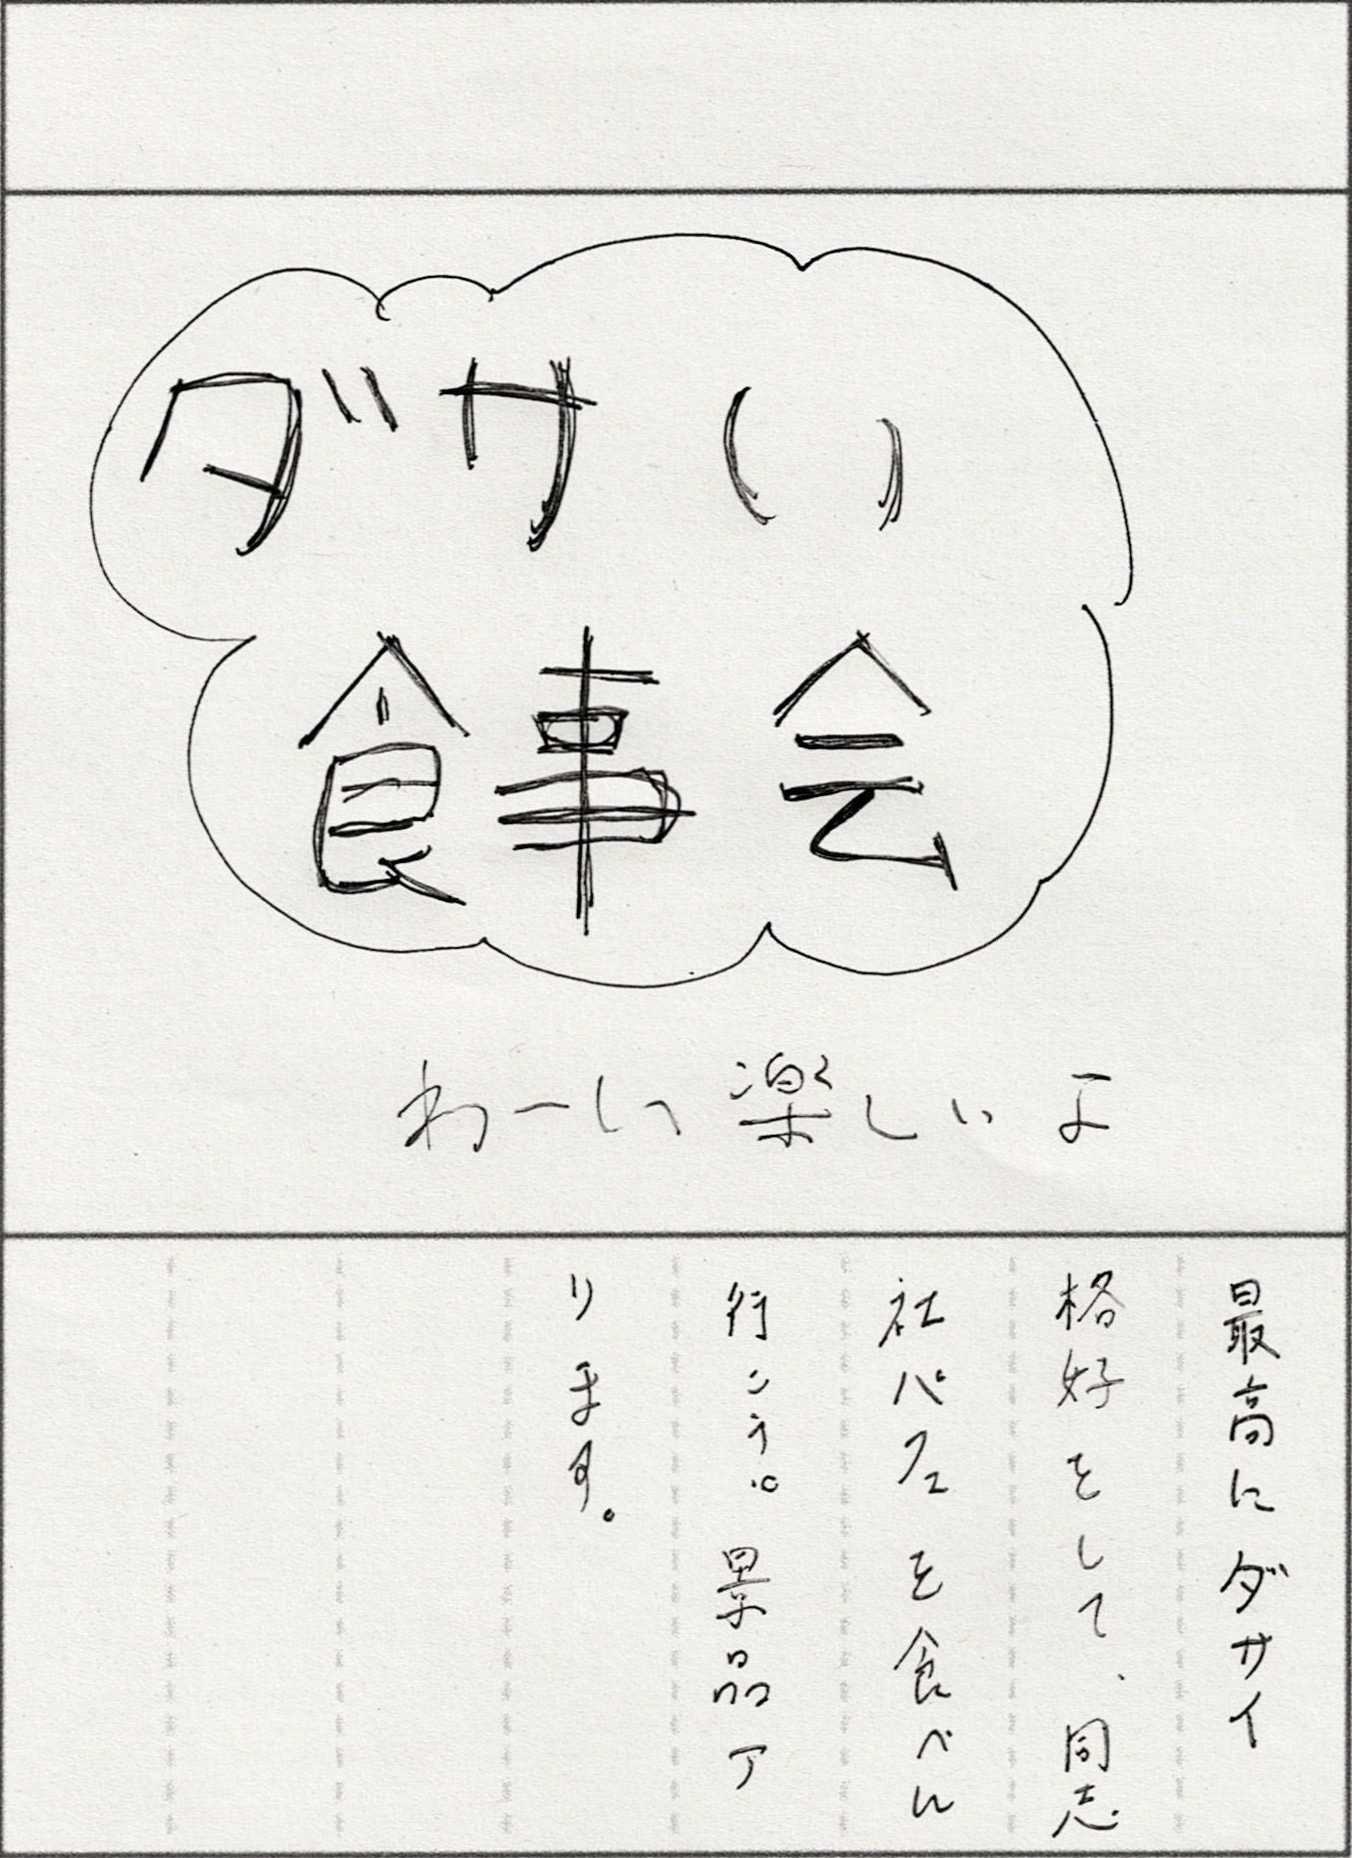 ダサい
食事会
わーい楽しいよ
最高にダサイ
格好をして、同志
社パフェを食べに
行こう。景品ア
リます。